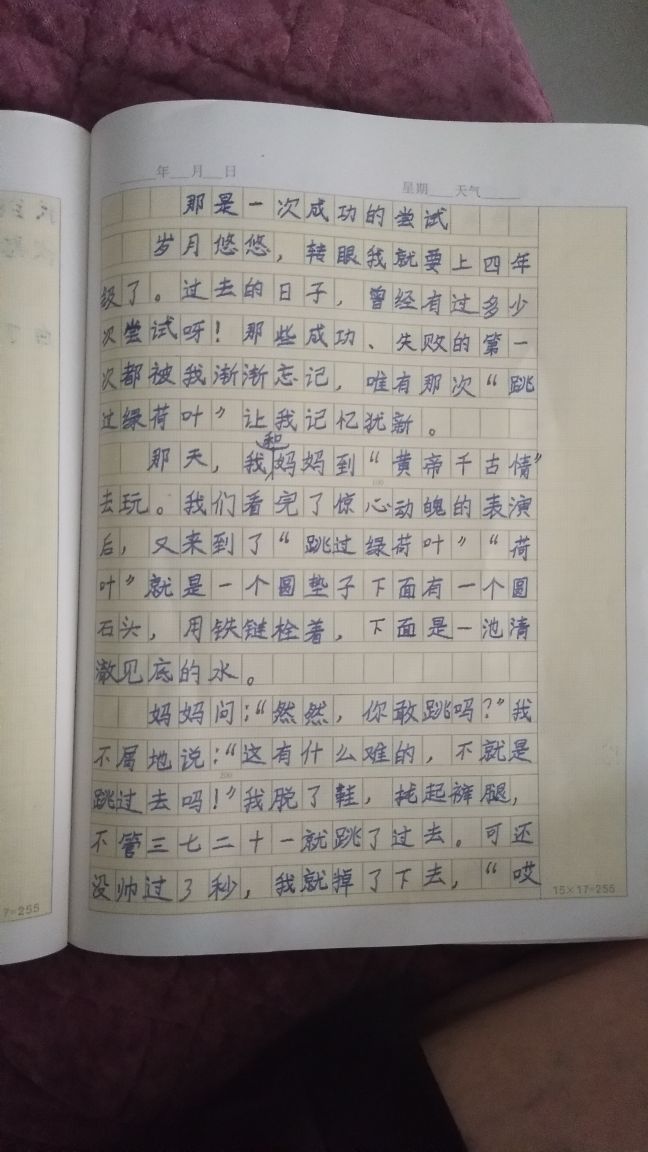 年 月 日
星期 天气
那是一次成功的尝试
岁月悠悠，转眼我就要上四年
级了。过去的日子，曾经有过多少
次尝试呀！那些成功、失败的第一
次都被我渐渐忘记，唯有那次“跳
过绿荷叶”让我记忆犹新。
那天，我和妈妈到“黄帝千古情”
100
去玩。我们看完了惊心动魄的表演
后，又来到了“跳过绿荷叶”“荷
叶”就是一个圆垫子下面有一个圆
石头，用铁链栓着，下面是一池清
澈见底的水。
妈妈问：“然然，你敢跳吗？”我
不屑地说：“这有什么难的，不就是
200
跳过去吗！”我脱了鞋，挽起裤腿，
不管三七二十一就跳了过去。可还
没帅过3秒，我就掉了下去，“哎
15×17=255
7=255